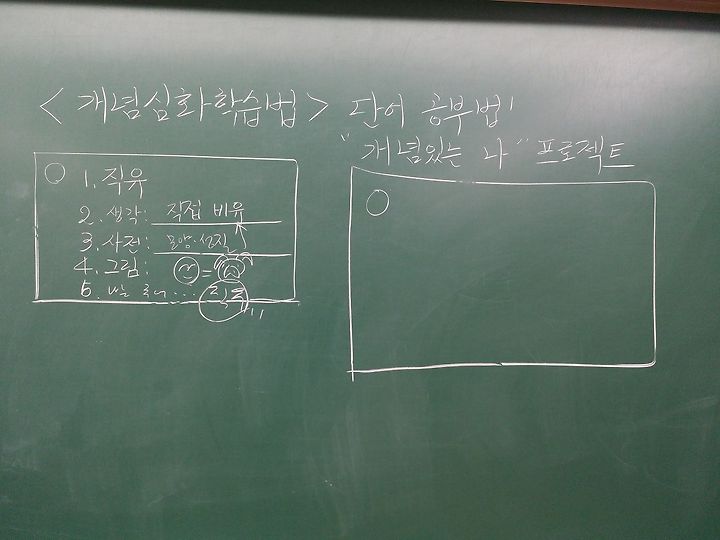 <개념심화학습법> 단어 공부법!
"개념있는 나" 프로젝트
1. 직유
2. 생각: 직접 비유
3. 사전: 모양·성질
4. 그림: =
5. 직유